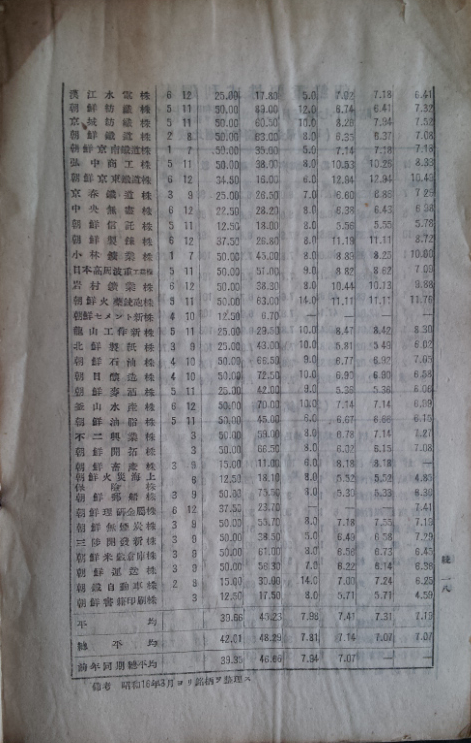 漢江水電株 6 12 25.00 17.80 5.0 7.02 7.18 6.41
朝鮮紡織株 5 11 50.00 89.00 12.0 6.74 6.41 7.32
京城紡織株 5 11 50.00 60.50 10.0 8.26 7.94 7.52
朝鮮鐵道株 2 8 50.00 63.00 8.0 6.35 6.37 7.08
朝鮮京南鐵道株 1 7 50.00 35.00 5.0 7.14 7.18 7.18
弘中商工株 5 11 50.00 38.00 8.0 10.53 10.26 8.33
朝鮮京東鐵道株 6 12 34.50 16.00 6.0 12.94 12.94 10.43
京春鐵道株 3 9 25.00 26.50 7.0 6.60 6.86 7.26
中央無盡株 6 12 22.50 28.20 8.0 6.38 6.43 6.98
朝鮮信託株 5 11 12.50 18.00 8.0 5.56 5.55 5.78
朝鮮製錬株 6 12 37.50 26.80 8.0 11.19 11.11 8.72
小林鑛業株 1 7 50.00 45.00 8.0 8.89 8.25 10.00
日本高周波重工業株 5 11 50.00 51.00 9.0 8.82 8.62 7.09
岩村鑛業株 6 12 50.00 38.30 8.0 10.44 10.13 9.68
朝鮮火藥銃砲株 5 11 50.00 63.00 14.0 11.11 11.11 11.76
朝鮮セメント新株 4 10 12.50 6.70 — — —
龍山工作新株 5 11 25.00 29.50 10.0 8.47 8.42 8.30
北鮮製紙株 3 9 25.00 43.00 10.0 5.81 5.49 6.02
朝鮮石油株 4 10 50.00 66.50 9.0 6.77 6.92 7.05
朝日釀造株 4 10 50.00 72.50 10.0 6.90 6.90 6.58
朝鮮麥酒株 5 11 25.00 42.00 9.0 5.36 5.38 6.06
釜山水產株 6 12 50.00 70.00 10.0 7.14 7.14 6.99
朝鮮油脂株 5 11 50.00 45.00 6.0 6.67 6.66 6.15
不二興業株 3 50.00 59.00 8.0 6.78 7.14 7.27
朝鮮開拓株 3 50.00 66.50 8.0 6.02 6.15 7.08
朝鮮畜產株 3 9 15.00 11.00 6.0 8.18 8.18 —
朝鮮火災海上保險株 6 12.50 18.10 8.0 5.52 5.52 4.85
朝鮮郵船株 3 9 50.00 75.50 8.0 5.30 5.33 6.30
朝鮮理研金屬株 6 12 37.50 23.70 — — 7.41
朝鮮無煙炭株 3 9 50.00 55.70 8.0 7.18 7.55 7.19
三陟開發新株 3 9 50.00 38.50 5.0 6.49 6.58 7.29
朝鮮米穀倉庫株 3 9 50.00 61.00 8.0 6.56 6.73 6.45
朝鮮運送株 3 9 50.00 56.30 7.0 6.22 6.14 6.36
朝鐵自動車株 2 9 15.00 30.00 14.0 7.00 7.24 6.25
朝鮮書籍印刷株 3 12.50 17.50 8.0 5.71 5.71 4.59
平均 39.66 45.23 7.88 7.41 7.31 7.19
總平均 42.01 48.29 7.81 7.14 7.07 7.07
前年同期總平均 39.35 46.66 7.94 7.07 —
備考 昭和16年3月ヨリ銘柄ヲ整理ス
一八